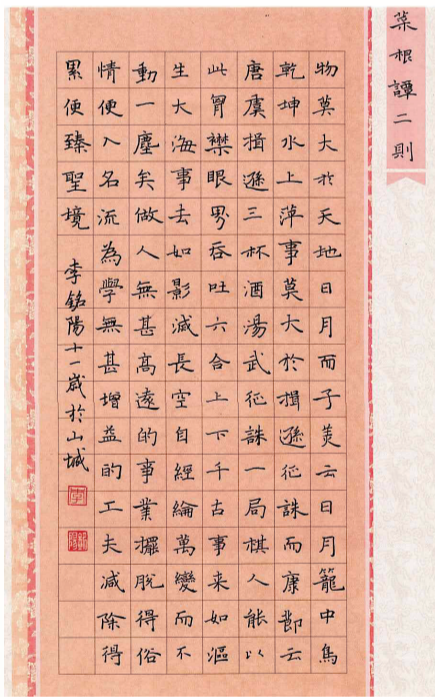 菜根譚二則
物莫大於天地日月而子美云日月籠中鳥
乾坤水上萍事莫大於揖遜征誅而康節云
唐虞揖遜三杯酒湯武征誅一局棋人能以
此胷襟眼界吞吐六合上下千古事来如漚
生大海事去如影滅長空自經綸萬變而不
動一塵矣做人無甚高遠的事業擺脫得俗
情便入名流為學無甚增益的工夫減除得
累便臻聖境 李銘陽十一歲於山城
李